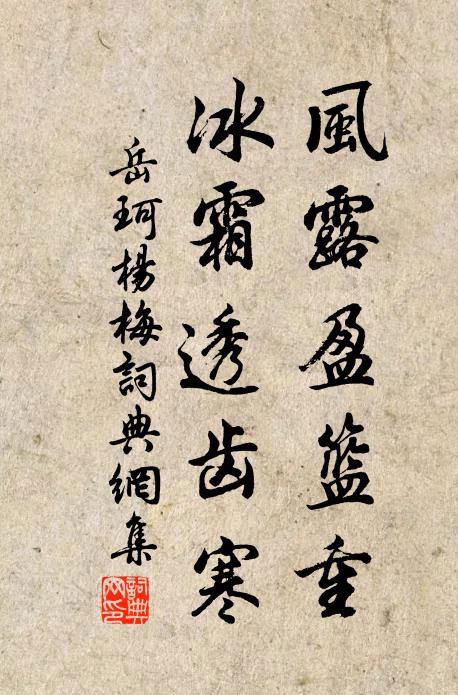 風露盈籃重
冰霜透齿寒
岳珂楊梅詞典網集
詞典网印